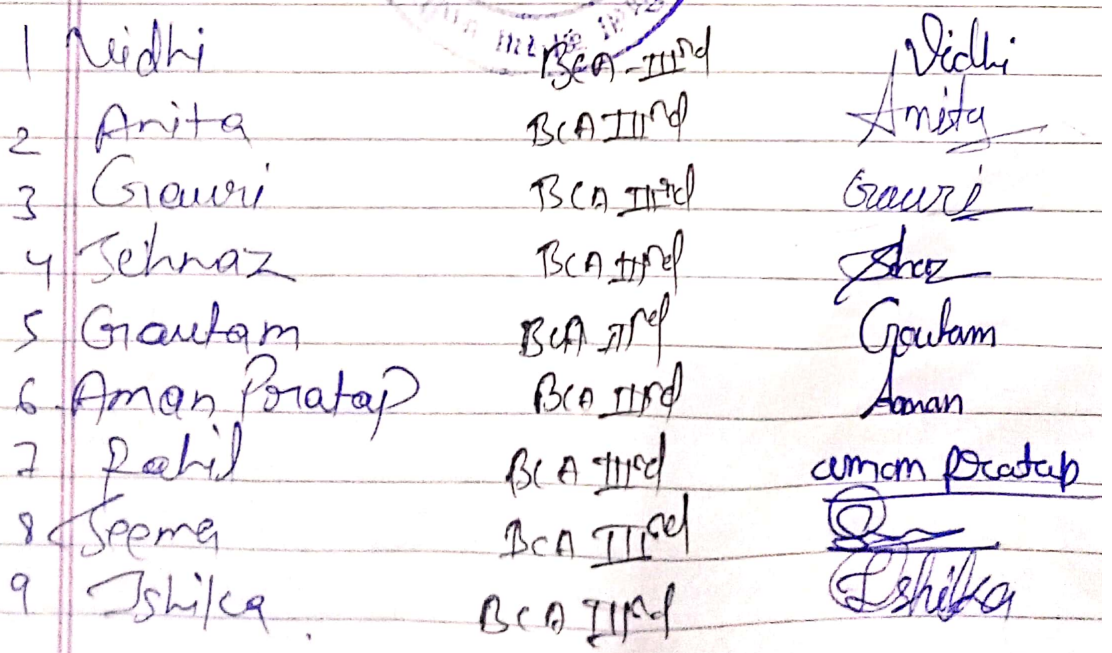 1 Vidhi BCA-IIInd Vidhi
2 Anita BCA IIInd Anita
3 Gauri BCA IIIrd Gauri
4 Sehnaz BCA IIIrd
5 Gautam BCA IIIrd Goutam
6 Aman Pratap BCA IIIrd Aman
7 Rahil BCA IIIrd aman pratap
8 Seema BCA IIIrd
9 Ishika BCA IIIrd Ishika